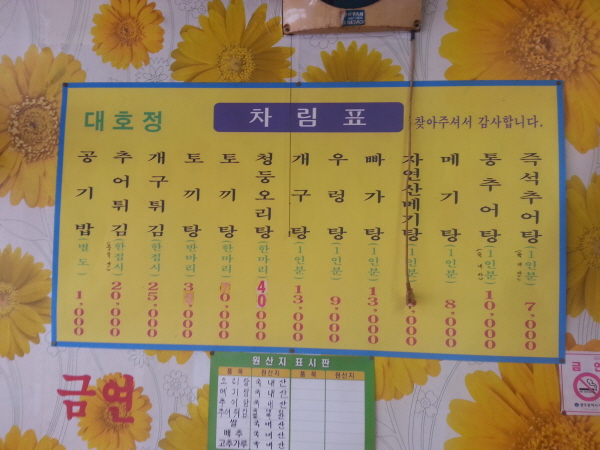 대호정
차림표
찾아주셔서 감사합니다.
즉석추어탕 (1인분) 7,000
통추어탕 (1인분) 10,000
메기탕 (1인분) 8,000
자연산메기탕 (1인분)
빠가탕 (1인분) 13,000
우렁탕 (1인분) 9,000
개구탕 (1인분) 13,000
청둥오리탕 (한마리) 40,000
토끼탕 (한마리)
토끼탕 (반마리)
개구튀김 (한접시) 25,000
추어튀김 (한접시) 20,000
공기밥 (별도) 1,000
금연
원산지 표시판
품목 원산지 품목 원산지
쌀 국내산
배추 국내산
고추가루 국내산
금연